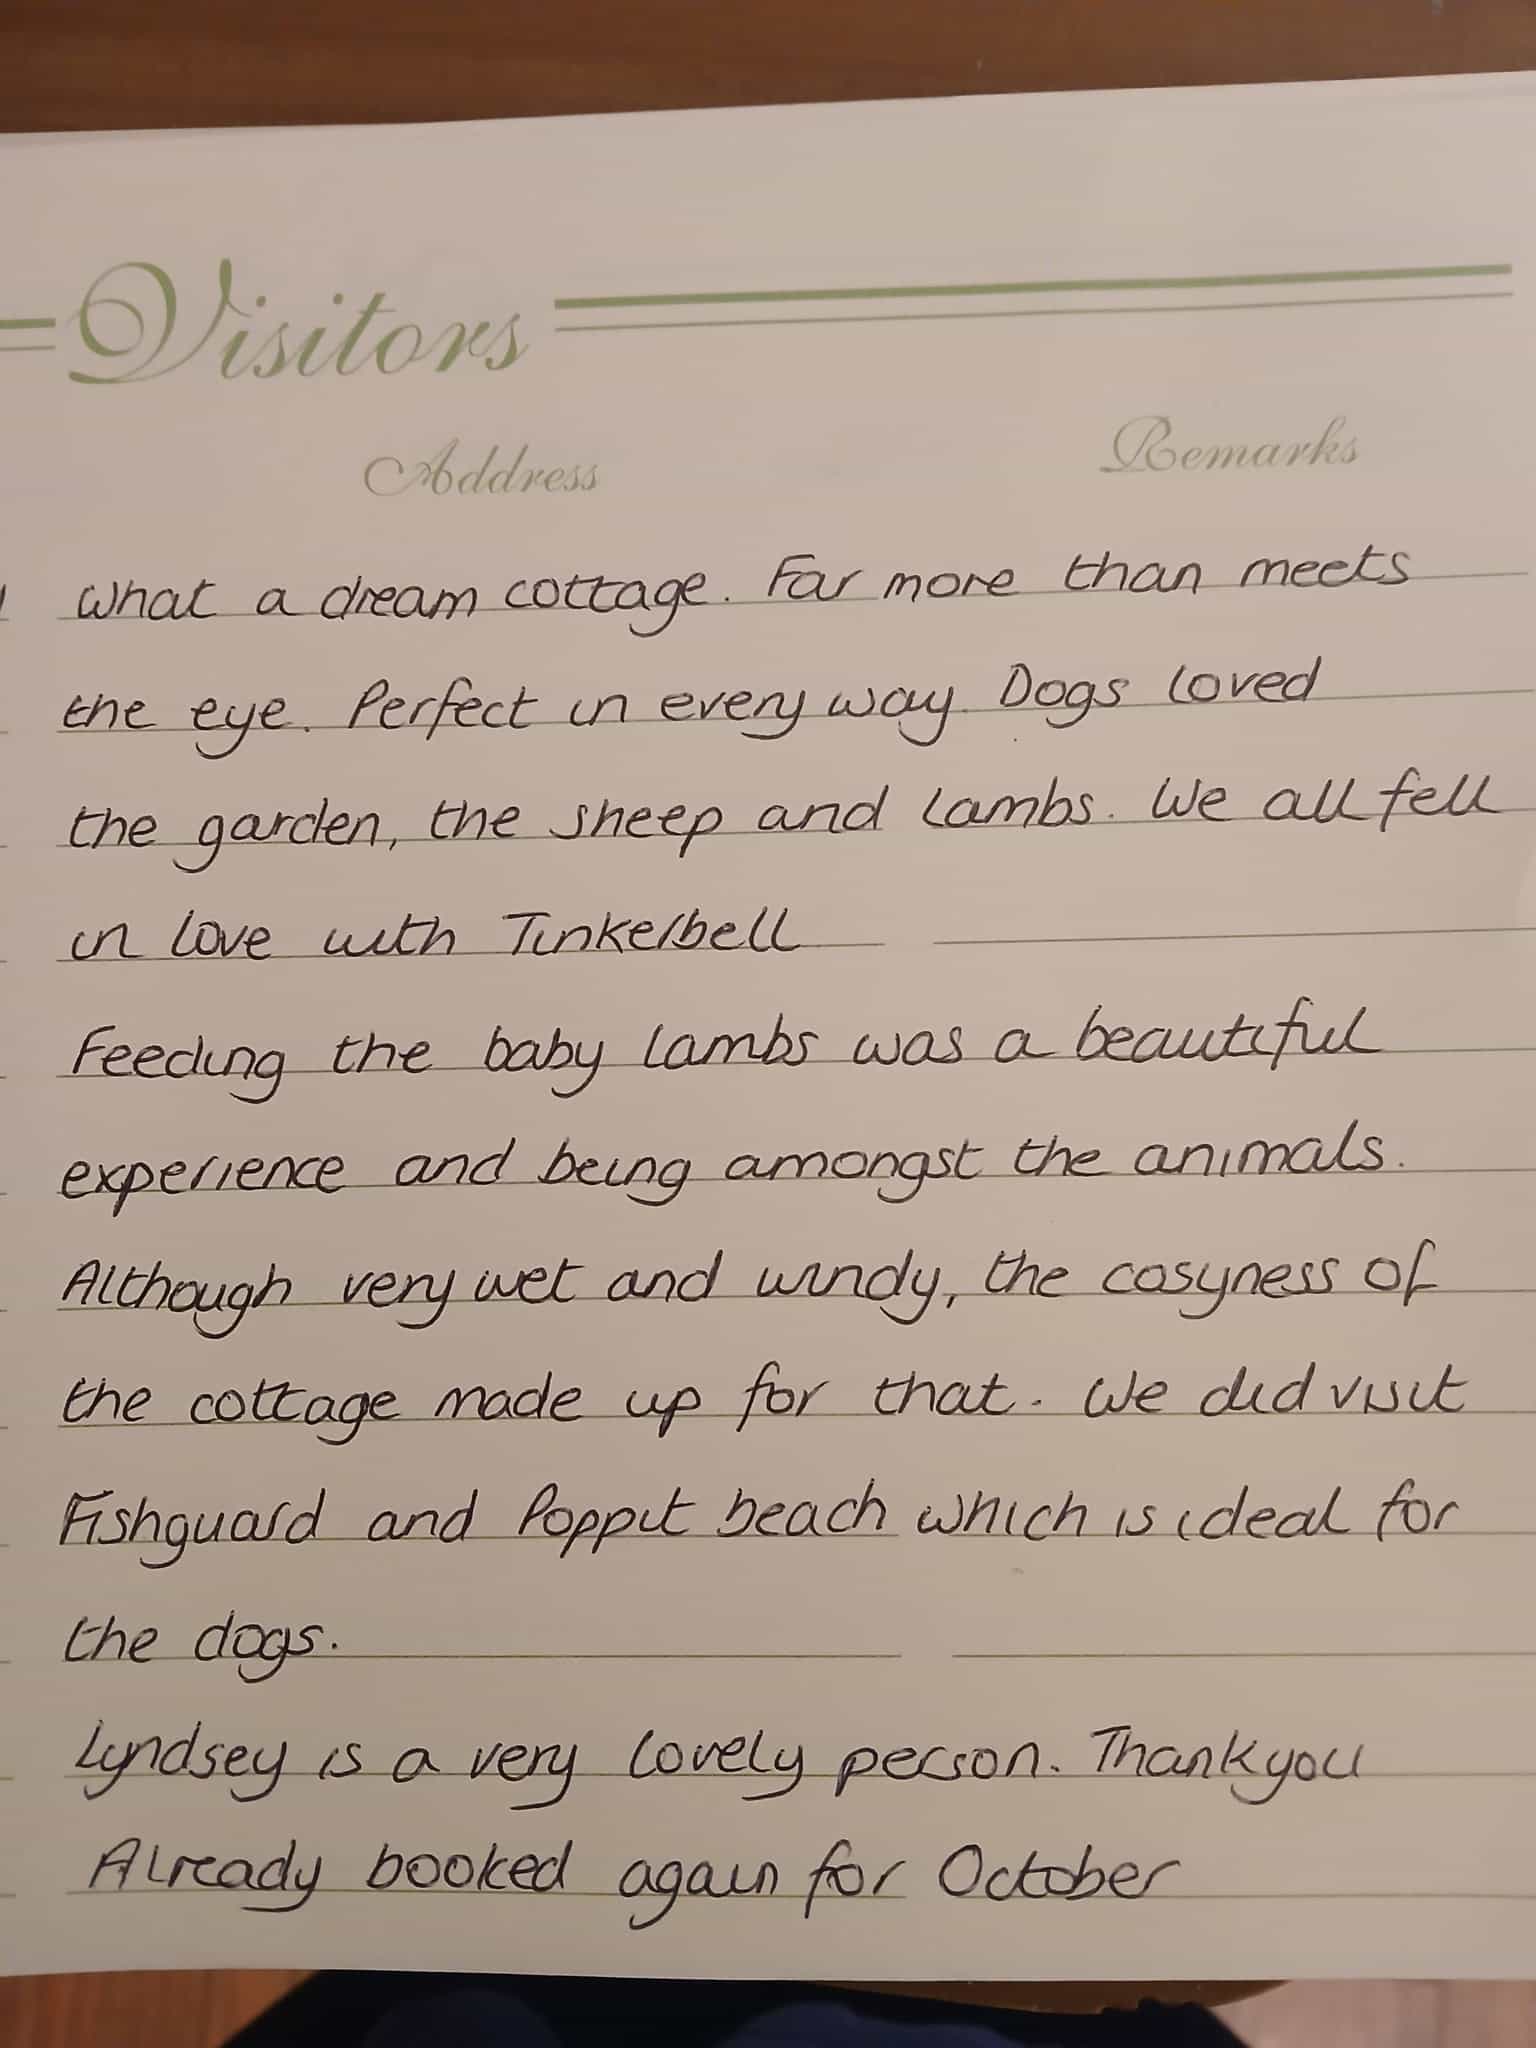 Visitors
Address Remarks
What a dream cottage. Far more than meets
the eye. Perfect in every way. Dogs loved
the garden, the sheep and lambs. We all fell
in love with Tinkerbell
Feeding the baby lambs was a beautiful
experience and being amongst the animals.
Although very wet and windy, the cosyness of
the cottage made up for that. We did visit
Fishguard and Poppit beach which is ideal for
the dogs.
Lyndsey is a very lovely person. Thankyou
Already booked again for October